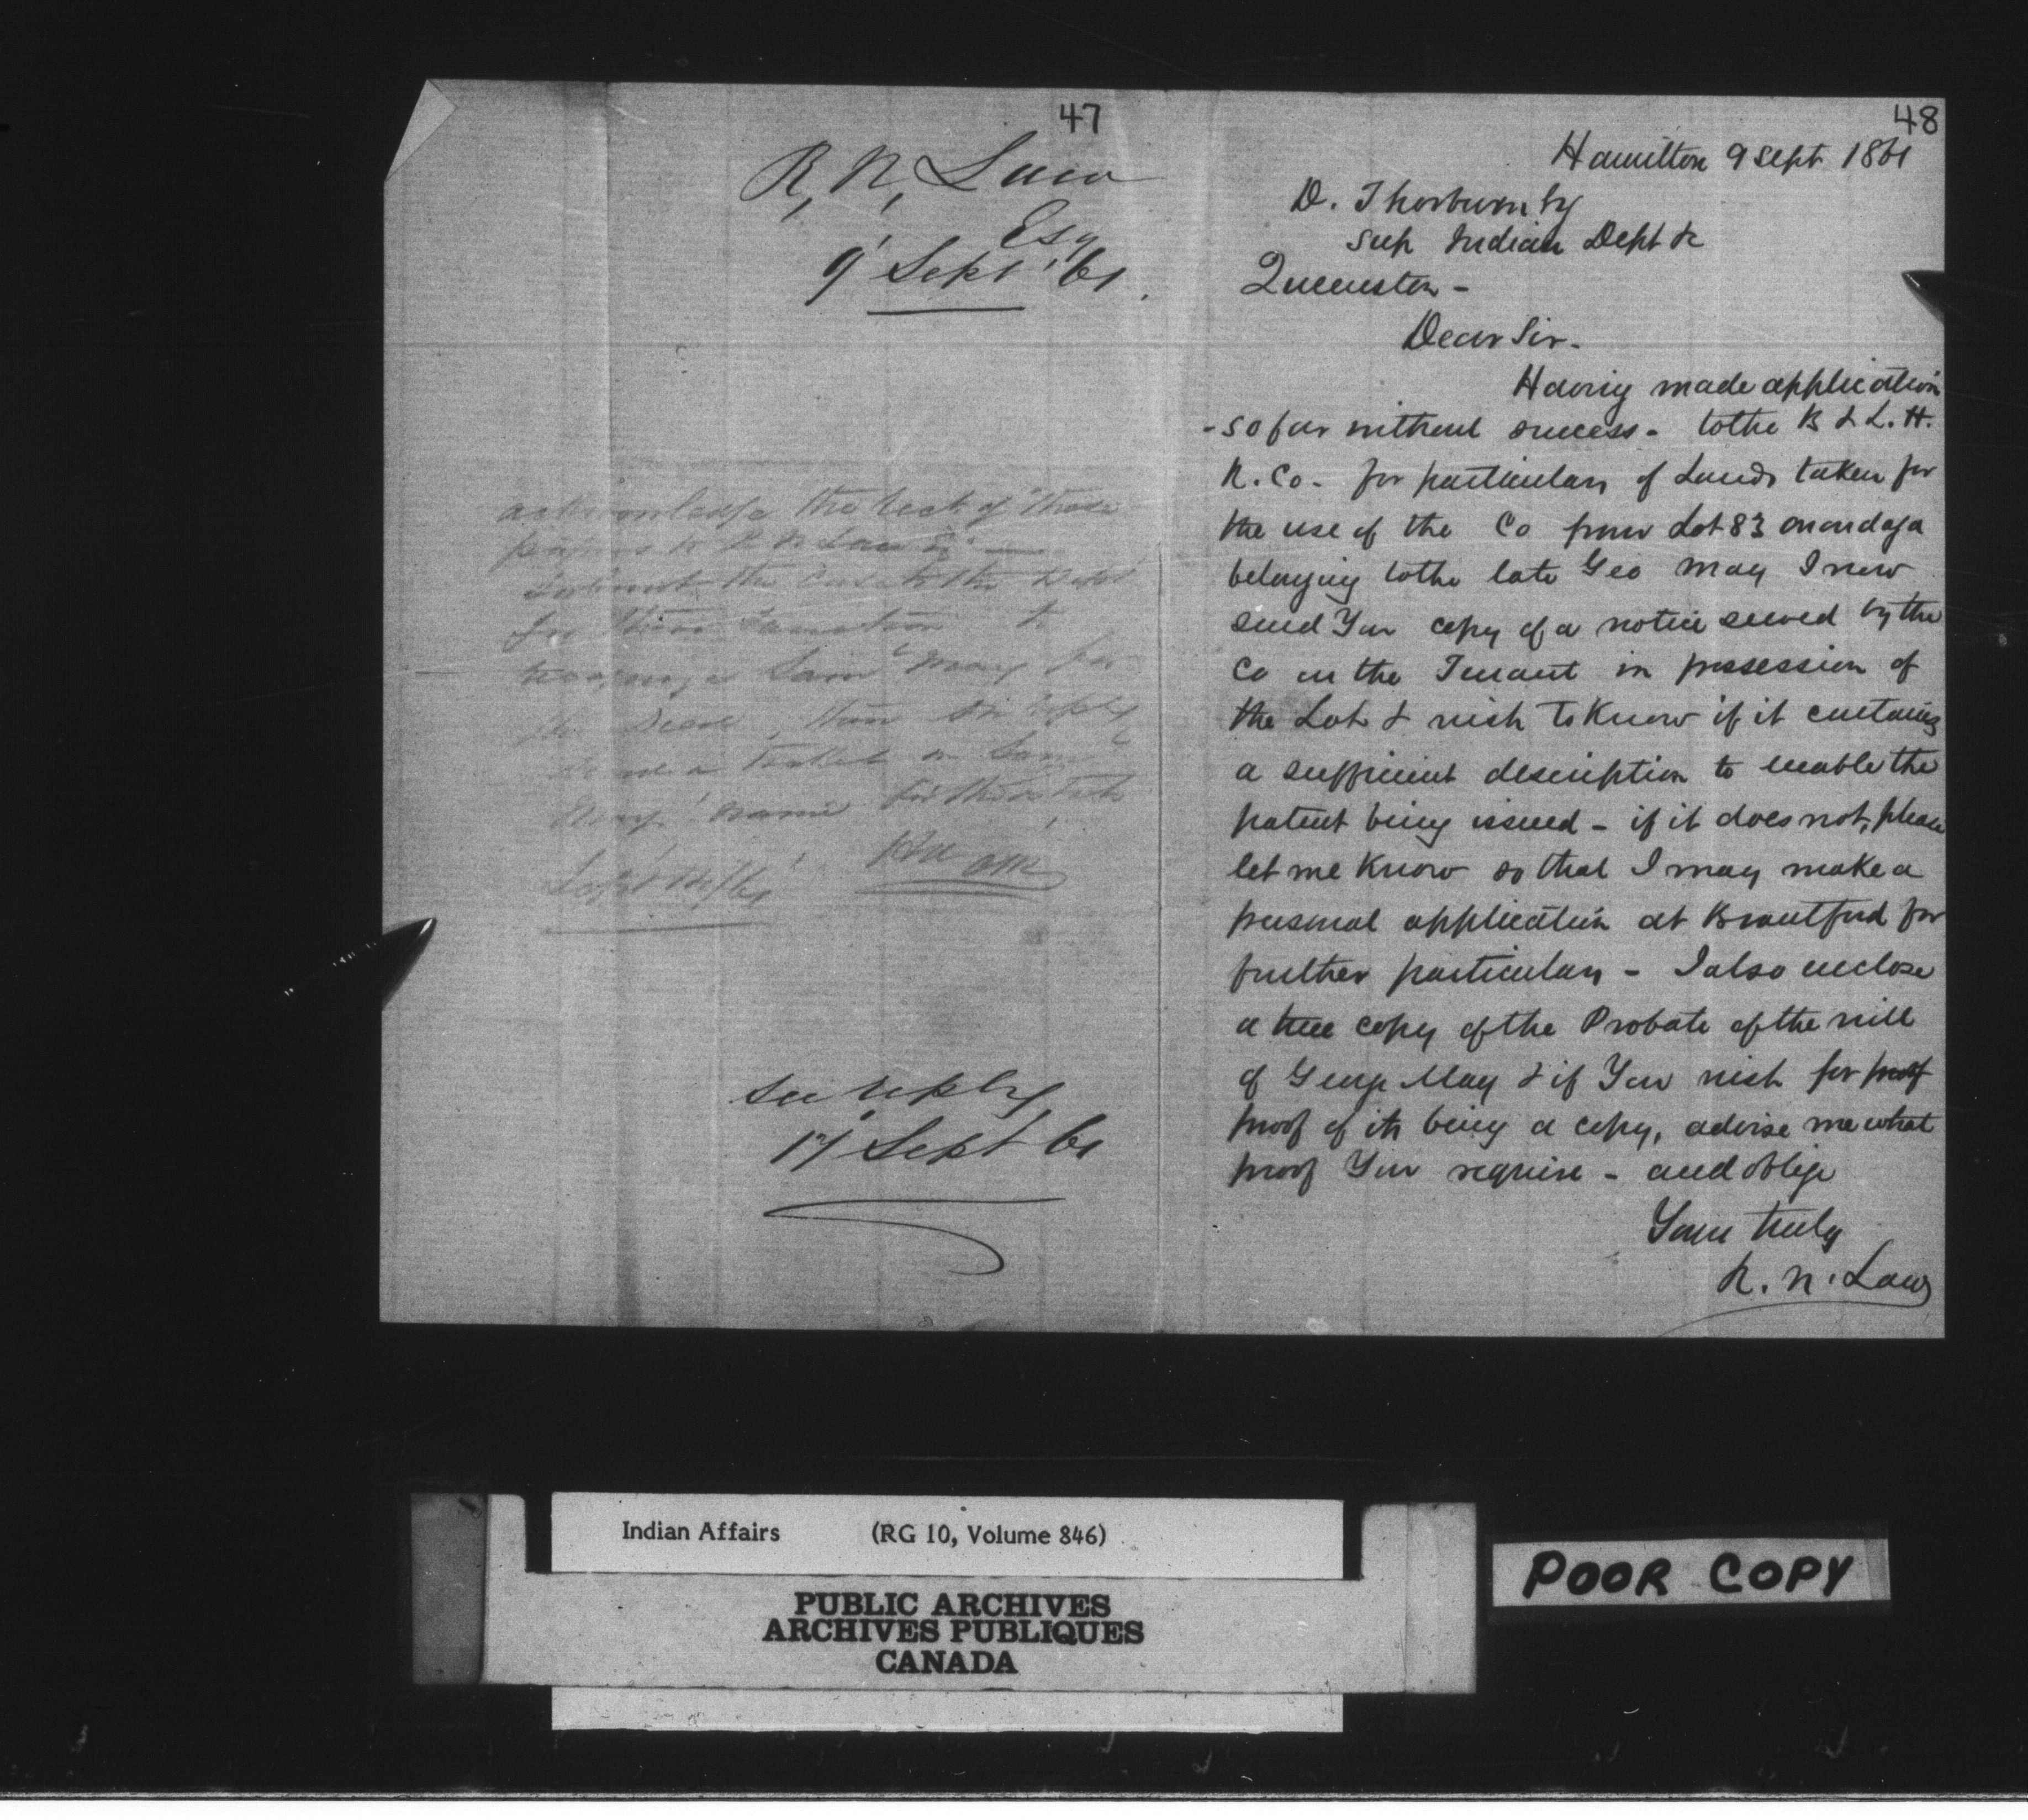 47
R, N, Law
Esq
9 Sept 61.
acknowledge the of these
papers to R N Law Esq
submit the case to the Dept
for their Sanction to
Sam May for
the Deed, then on reply
a on Sam
May's name for the
Sept 12/61
See reply
17 Sept 61
48
Hamilton 9 Sept 1861
D. Thorburn Esq
Sup Indian Dept &c
Queenston -
Dear Sir -
Having made application
- so far without success - to the B & L. H.
R. Co - for particulars of Lands taken for
the use of the Co from Lot 83 Onondaga
belonging to the late Geo May I now
send You copy of a notice served by the
Co on the Tenant in possession of
the Lot & wish to know if it contains
a sufficient description to enable the
patent being issued - if it does not, please
let me know so that I may make a
personal application at Brantford for
further particulars - I also enclose
a true copy of the Probate of the will
of George May & if You wish for proof
proof of its being a copy, advise me what
proof You require - and oblige
Yours truly
R. N. Law
Indian Affairs (RG 10, Volume 846)
PUBLIC ARCHIVES
ARCHIVES PUBLIQUES
CANADA
POOR COPY